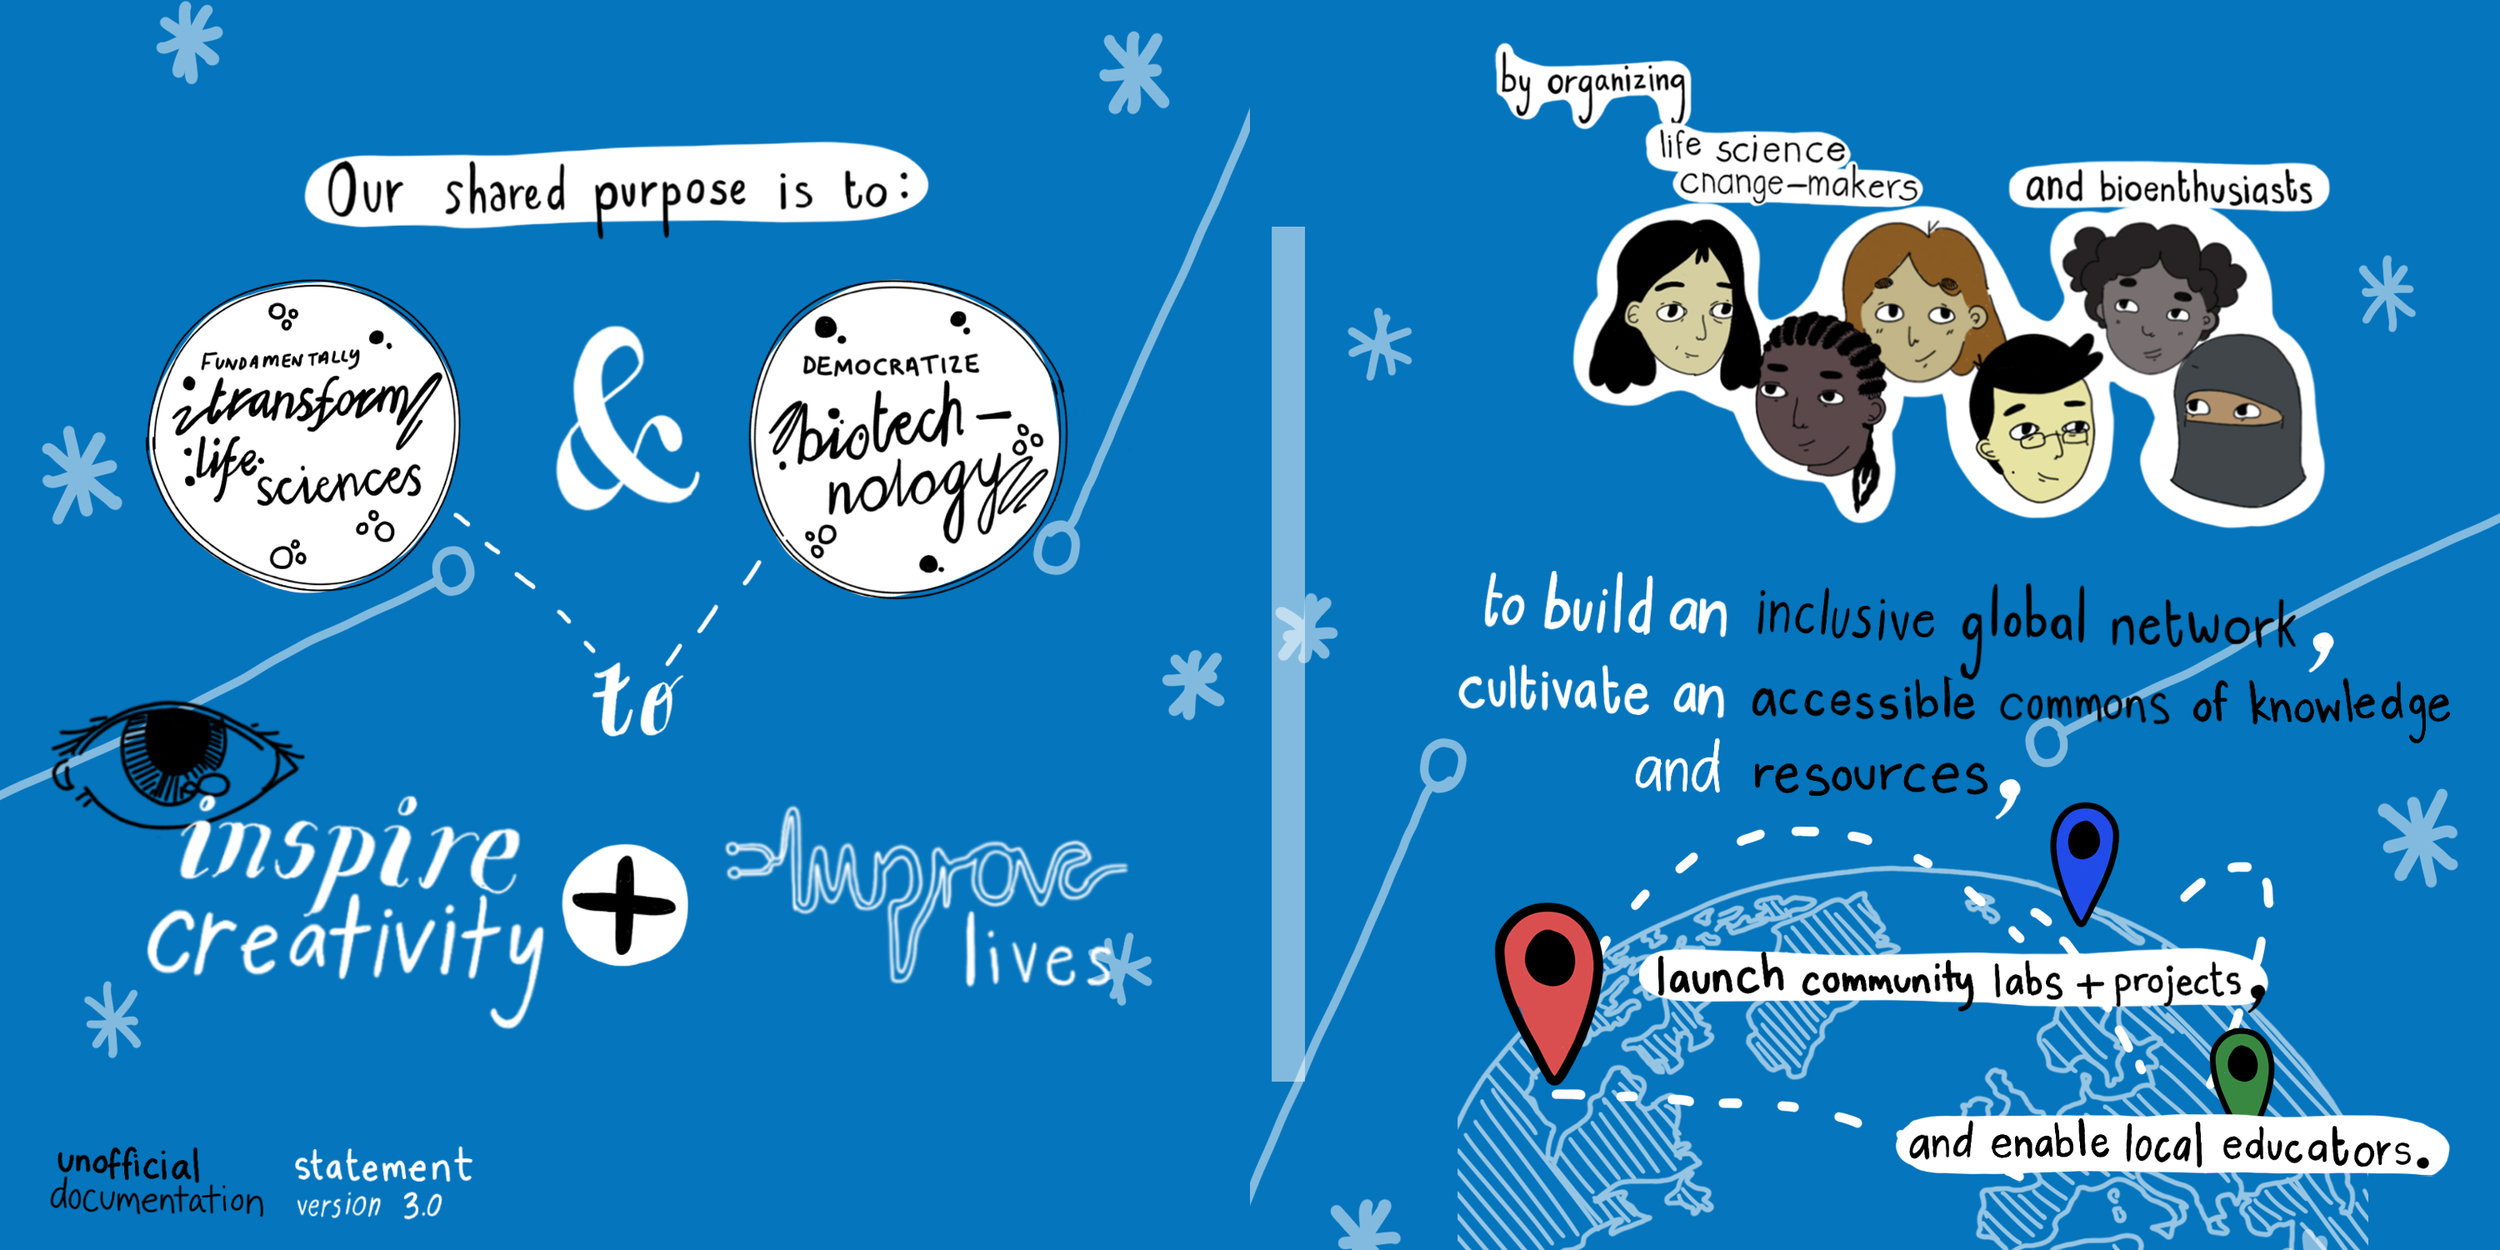 Our shared purpose is to:
FUNDAMENTALLY
transform
life
sciences
&
DEMOCRATIZE
biotech-
nology
to
inspire
creativity
+
Improve
lives
unofficial
documentation
statement
version 3.0
by organizing
life science
change-makers
and bioenthusiasts
to build an inclusive global network,
cultivate an accessible commons of knowledge
and resources,
launch community labs + projects,
and enable local educators.